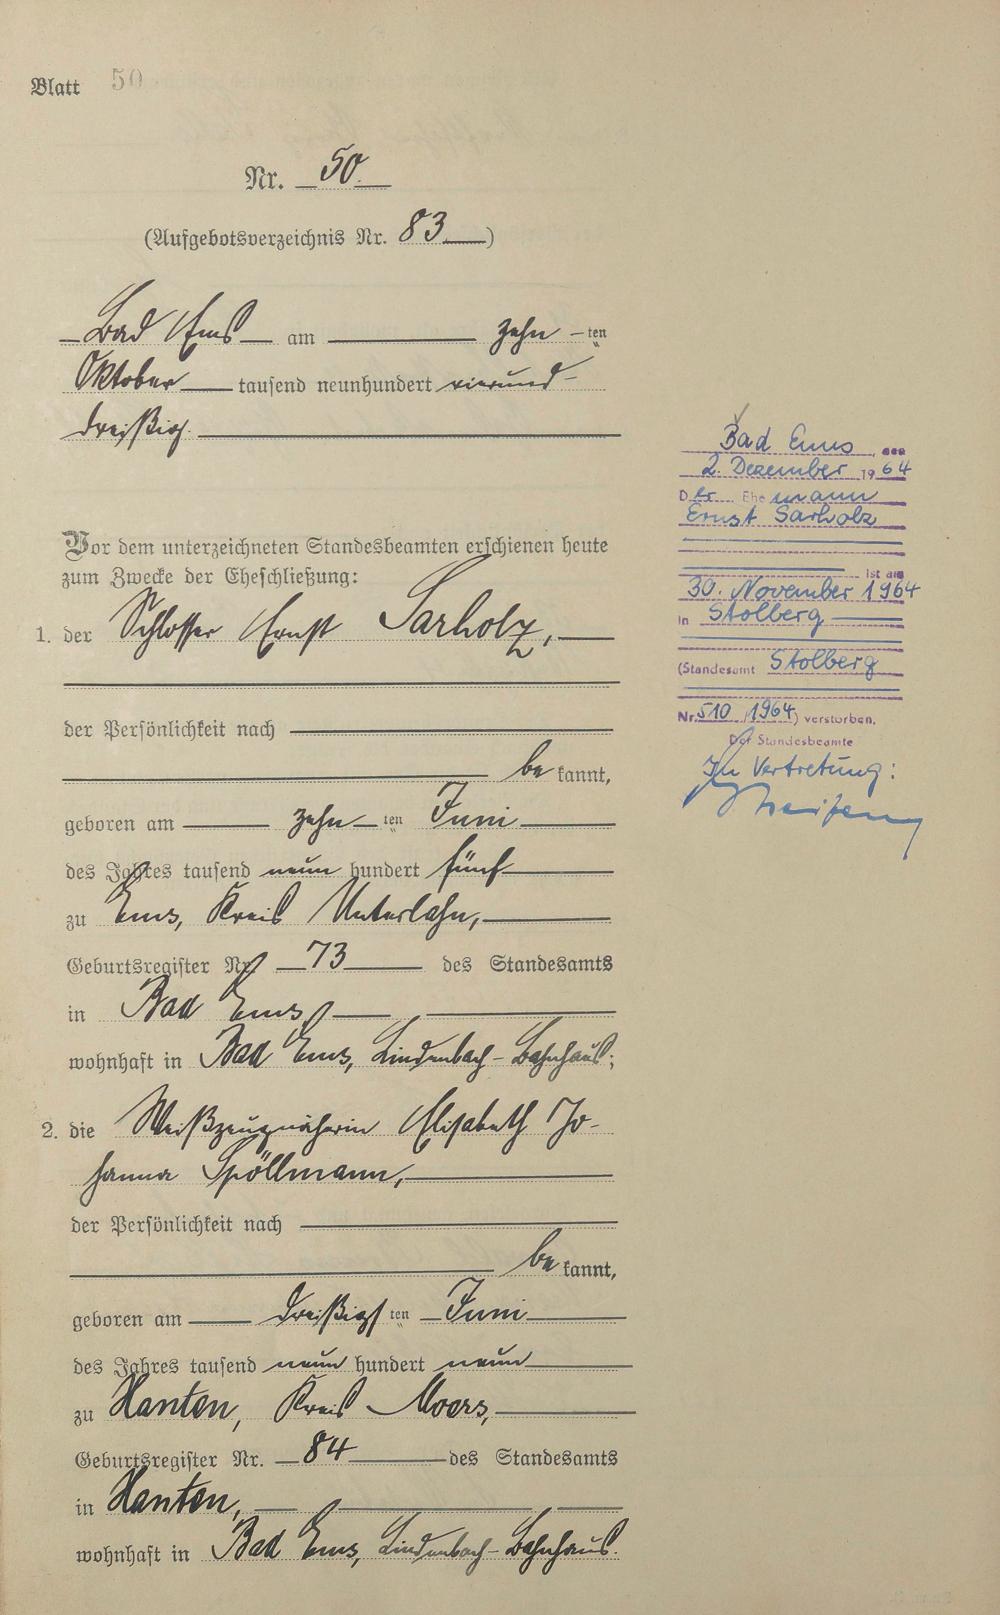 Blatt 50
Nr. 50
(Aufgebotsverzeichnis Nr. 83)
Bad Ems am zehn ten
Oktober tausend neunhundert vierund-
dreißig.
Vor dem unterzeichneten Standesbeamten erschienen heute
zum Zwecke der Eheschließung:
1. der Schlosser Ernst Sarholz,
der Persönlichkeit nach
be kannt,
geboren am zehn ten Juni
des Jahres tausend neun hundert fünf
zu Ems, Kreis Unterlahn,
Geburtsregister Nr. 73 des Standesamts
in Bad Ems,
wohnhaft in Bad Ems, Lindenbach-Bahnhaus;
2. die Weißzeugnäherin Elisabeth Jo-
hanna Spöllmann,
der Persönlichkeit nach
be kannt,
geboren am dreißigs ten Juni
des Jahres tausend neun hundert neun
zu Xanten, Kreis Moers,
Geburtsregister Nr. 84 des Standesamts
in Xanten,
wohnhaft in Bad Ems, Lindenbach-Bahnhaus.
Bad Ems, den
2. Dezember 1964
Der Ehemann
Ernst Sarholz
ist am
30. November 1964
in Stolberg
(Standesamt Stolberg
Nr. 510 / 1964) verstorben.
Der Standesbeamte
In Vertretung: